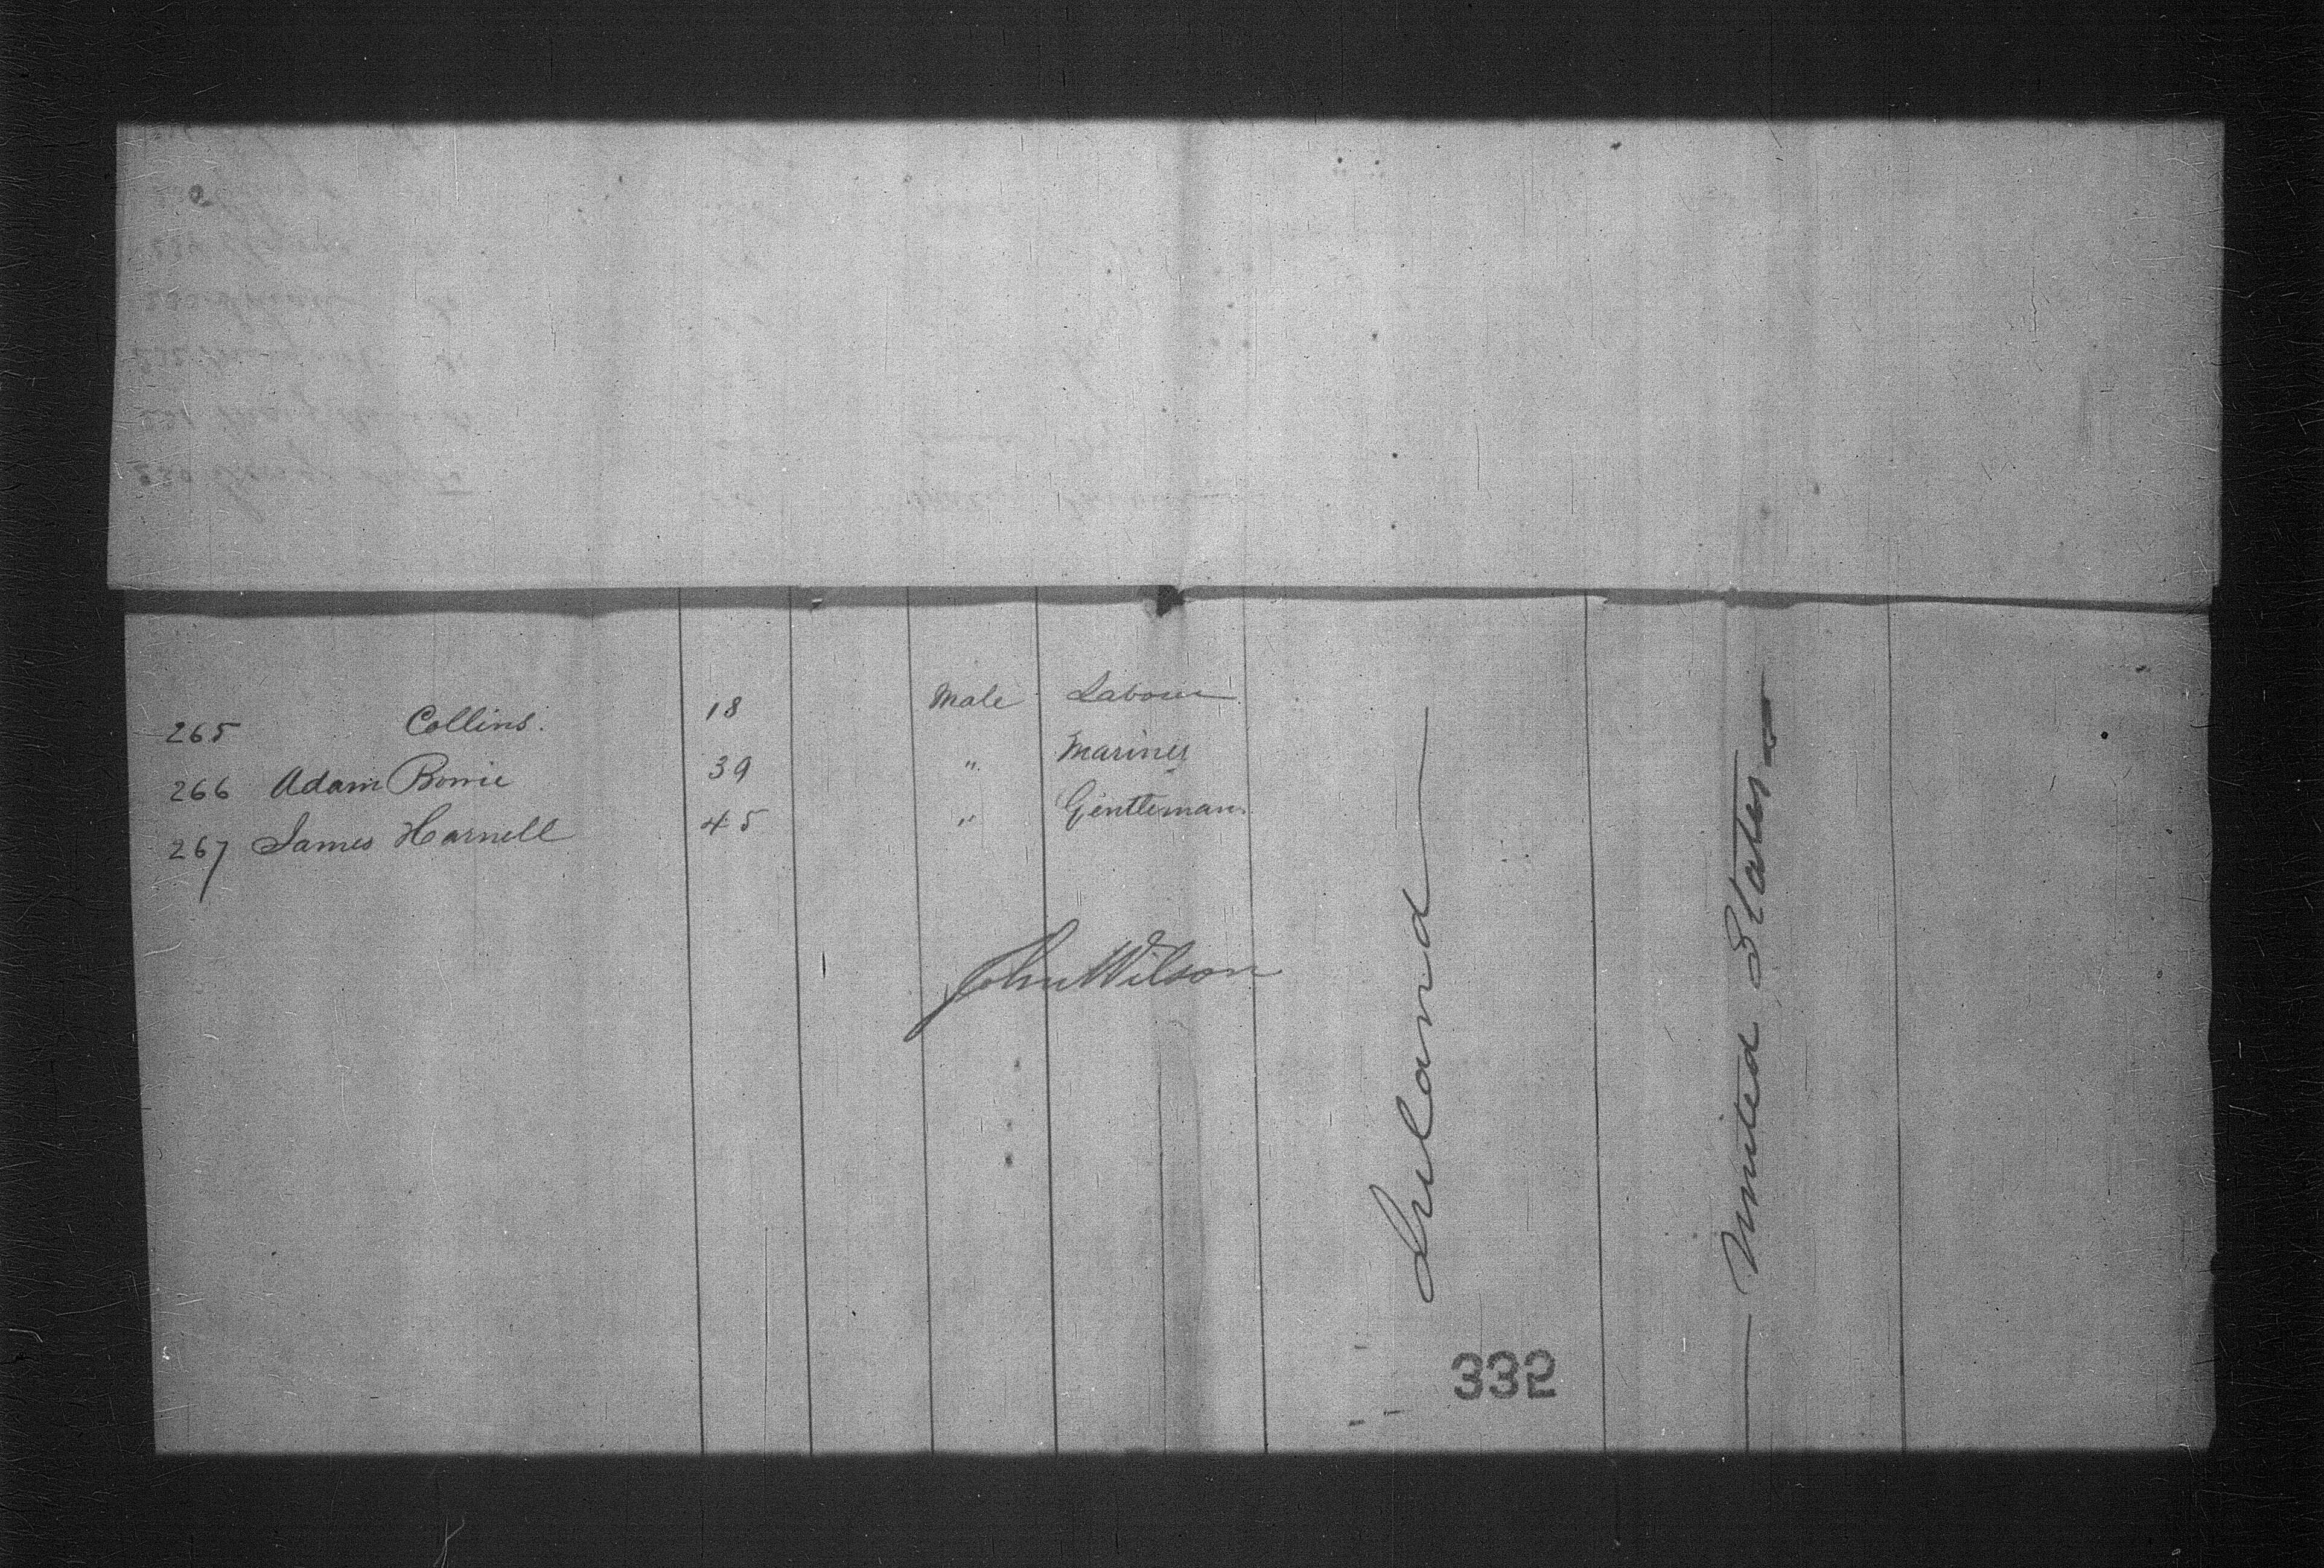 265 Collins. 18 Male Labour
266 Adam Bowie 39 " Mariner
267 James Harnell 45 " Gentleman
John Wilson
Ireland
United States
332